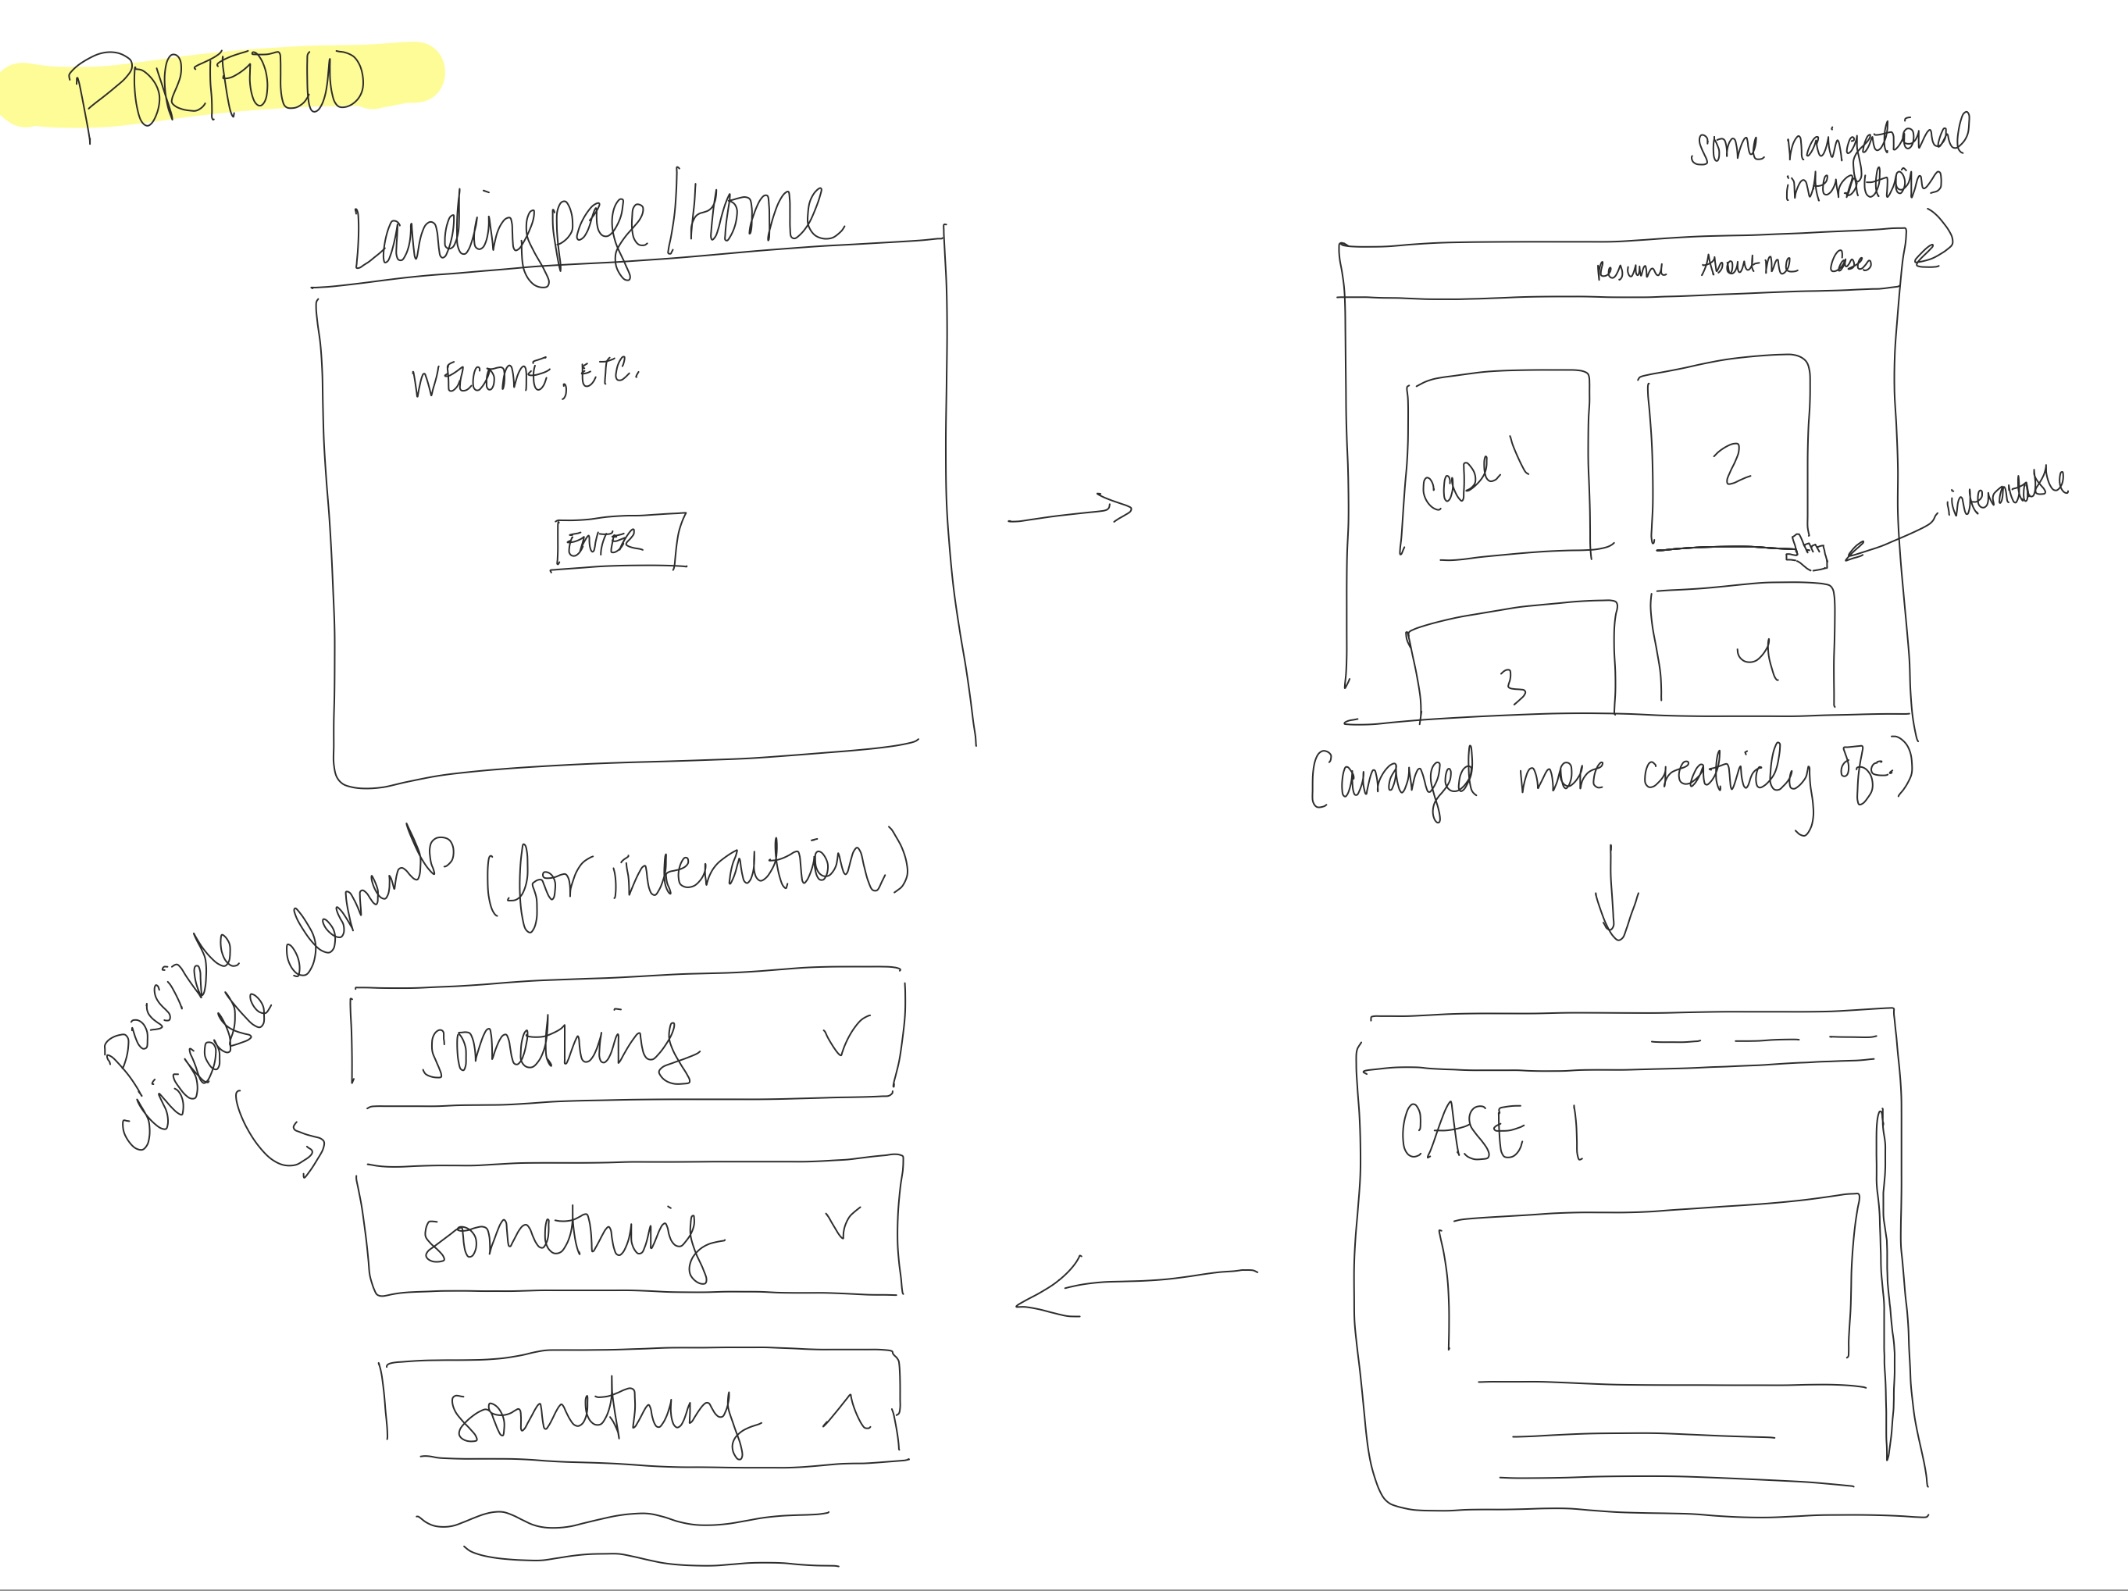 PORTFOLIO
Landing page/Home
WELCOME, ETC.
ENTER
some navigational
interactions
Resume About Me Cases
case 1
2
interactable
3
4
(arranged more creatively ofc.)
Possible
clickable elements (for interaction)
something
something
something
CASE 1